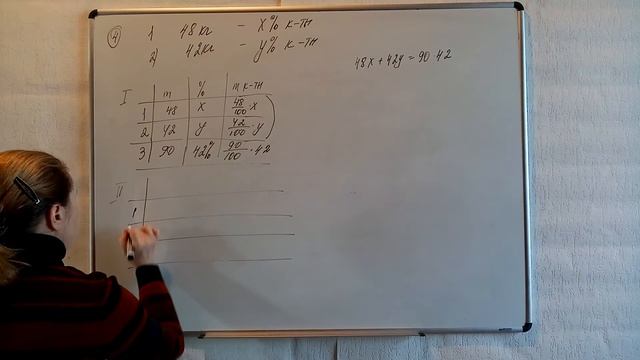 ④ 1 48кг – x% к-ты
2) 42кг – y% к-ты
48x + 42y = 90·42
I m % m к-ты
1 48 x 48/100 x
2 42 y 42/100 · y
3 90 42% 90/100 · 42
II
1